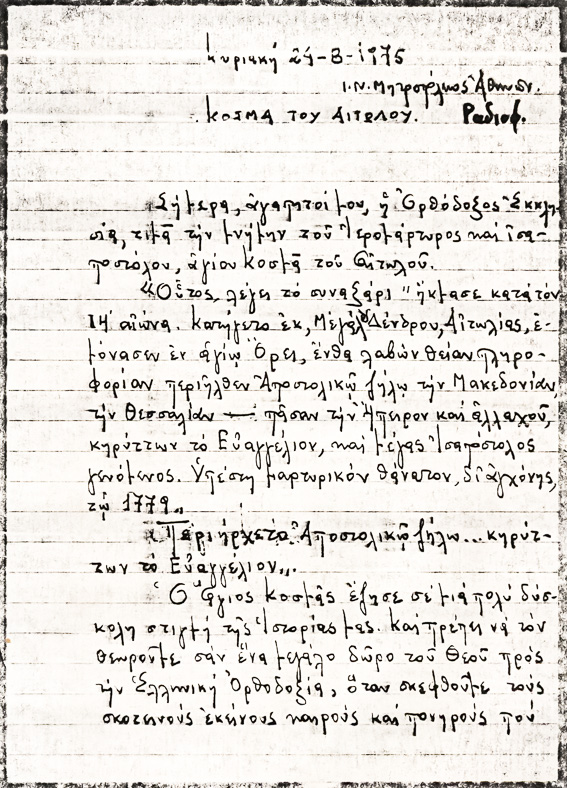 Κυριακή 24-8-1975
Ι.Ν. Μητροπόλεως Ἀθηνῶν.
ΚΟΣΜΑ ΤΟΥ ΑΙΤΩΛΟΥ. Ραδιοφ.
Σήμερα, ἀγαπητοί μου, ἡ Ὀρθόδοξος Ἐκκλη-
σία, τιμᾶ τήν μνήμην τοῦ Ἱερομάρτυρος καί ἰσα-
ποστόλου, ἁγίου Κοσμᾶ τοῦ Αἰτωλοῦ.
"Οὗτος, λέγει τό συναξάρι" ἤκμασε κατά τόν
ΙΗ αἰῶνα. Κατήγετο ἐκ, Μεγάλου Δένδρου, Αἰτωλίας, ἐ-
μόνασεν ἐν ἁγίῳ Ὄρει, ἔνθα λαβών θείαν πληρο-
φορίαν περιῆλθεν Ἀποστολικῷ ζήλῳ τήν Μακεδονίαν,
τήν Θεσσαλίαν πᾶσαν τήν Ἤπειρον καί ἀλλαχοῦ,
κηρύττων τό Εὐαγγέλιον, καί μέγας Ἰσαπόστολος
γενόμενος. Ὑπέστη μαρτυρικόν θάνατον, δι' ἀγχόνης,
τῷ 1779"
"Περιήρχετο Ἀποστολικῷ ζήλῳ... κηρύτ-
των τό Εὐαγγέλιον".
Ὁ Ἅγιος Κοσμᾶς ἔζησε σέ μιά πολύ δύσ-
κολη στιγμή τῆς Ἱστορίας μας. Καί πρέπει νά τόν
θεωροῦμε σάν ἕνα μεγάλο δῶρο τοῦ Θεοῦ πρός
τήν Ἑλληνική Ὀρθοδοξία, ὅταν σκεφθοῦμε τούς
σκοτεινούς ἐκείνους καιρούς καί πονηρούς πού